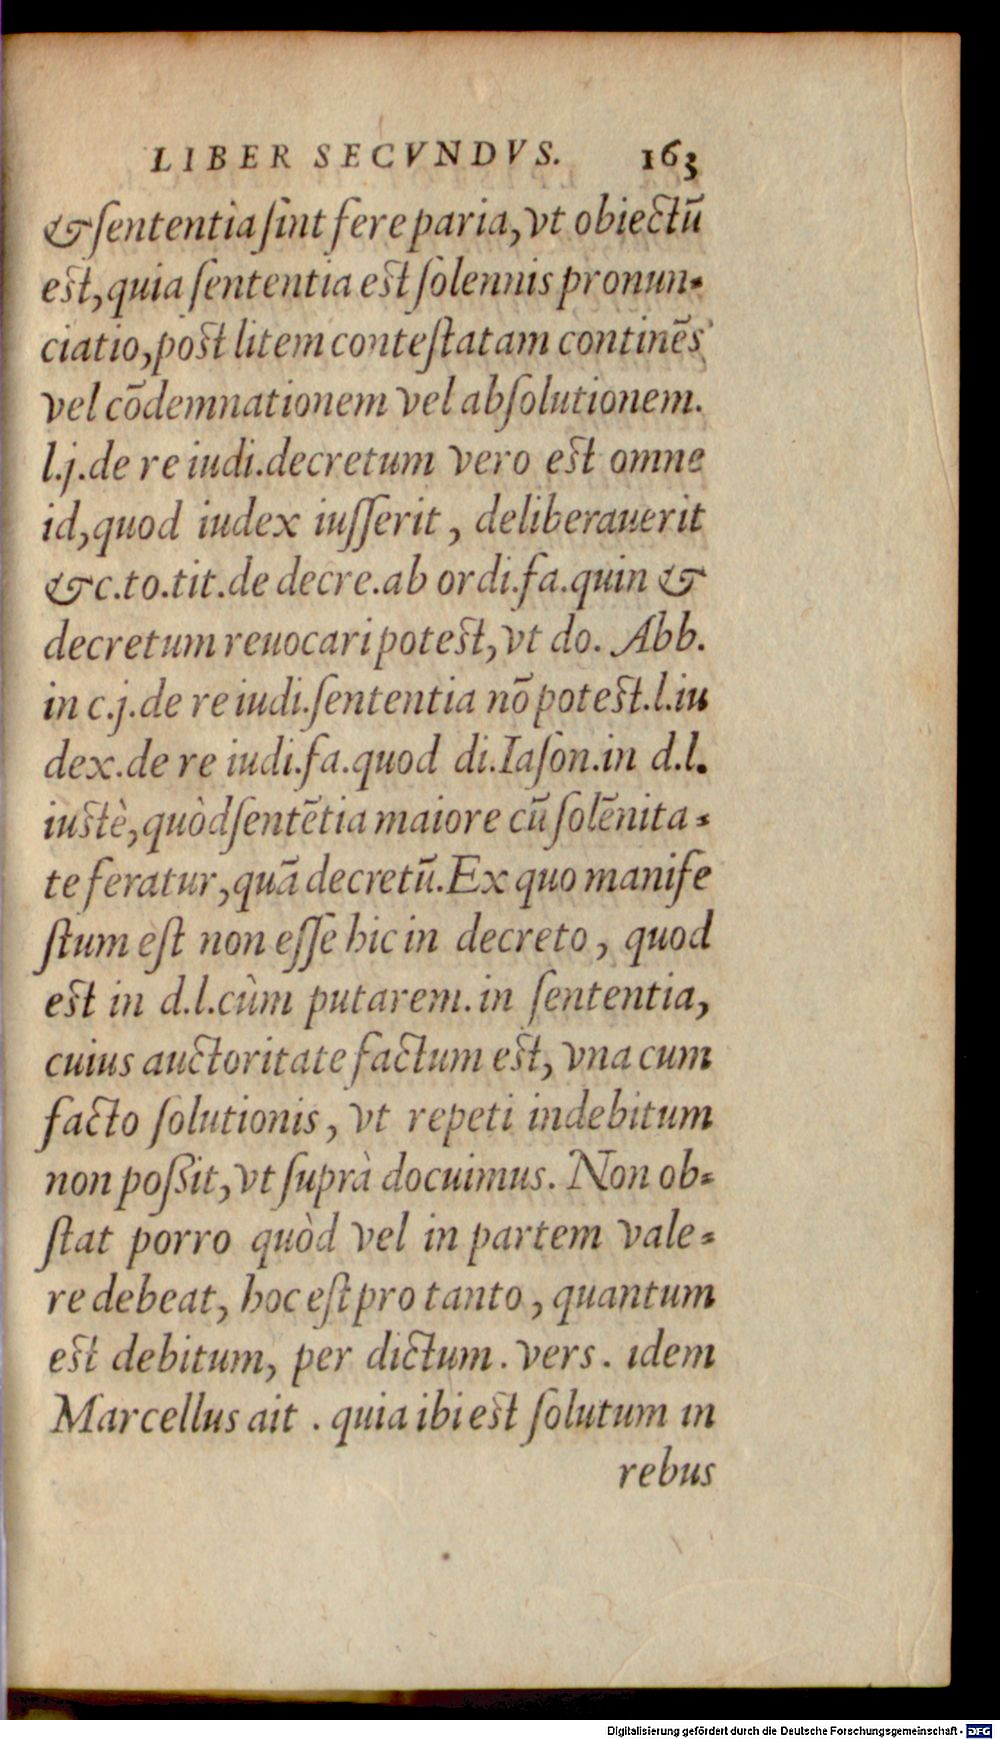 LIBER SECVNDVS. 163
& sententia sint fere paria, vt obiectū
est, quia sententia est solennis pronun-
ciatio, post litem contestatam continēs
vel cōdemnationem vel absolutionem.
l.j.de re iudi.decretum vero est omne
id, quod iudex iusserit, deliberauerit
&c.to.tit.de decre.ab ordi.fa.quin &
decretum reuocari potest, vt do. Abb.
in c.j.de re iudi.sententia nō potest.l.iu
dex.de re iudi.fa.quod di.Iason.in d.l.
iustè, quòd sentētia maiore cū solēnita-
te feratur, quā decretū. Ex quo manife
stum est non esse hic in decreto, quod
est in d.l.cùm putarem.in sententia,
cuius auctoritate factum est, vna cum
facto solutionis, vt repeti indebitum
non poßit, vt suprà docuimus. Non ob-
stat porro quòd vel in partem vale-
re debeat, hoc est pro tanto, quantum
est debitum, per dictum. vers. idem
Marcellus ait. quia ibi est solutum in
rebus
Digitalisierung gefördert durch die Deutsche Forschungsgemeinschaft - DFG